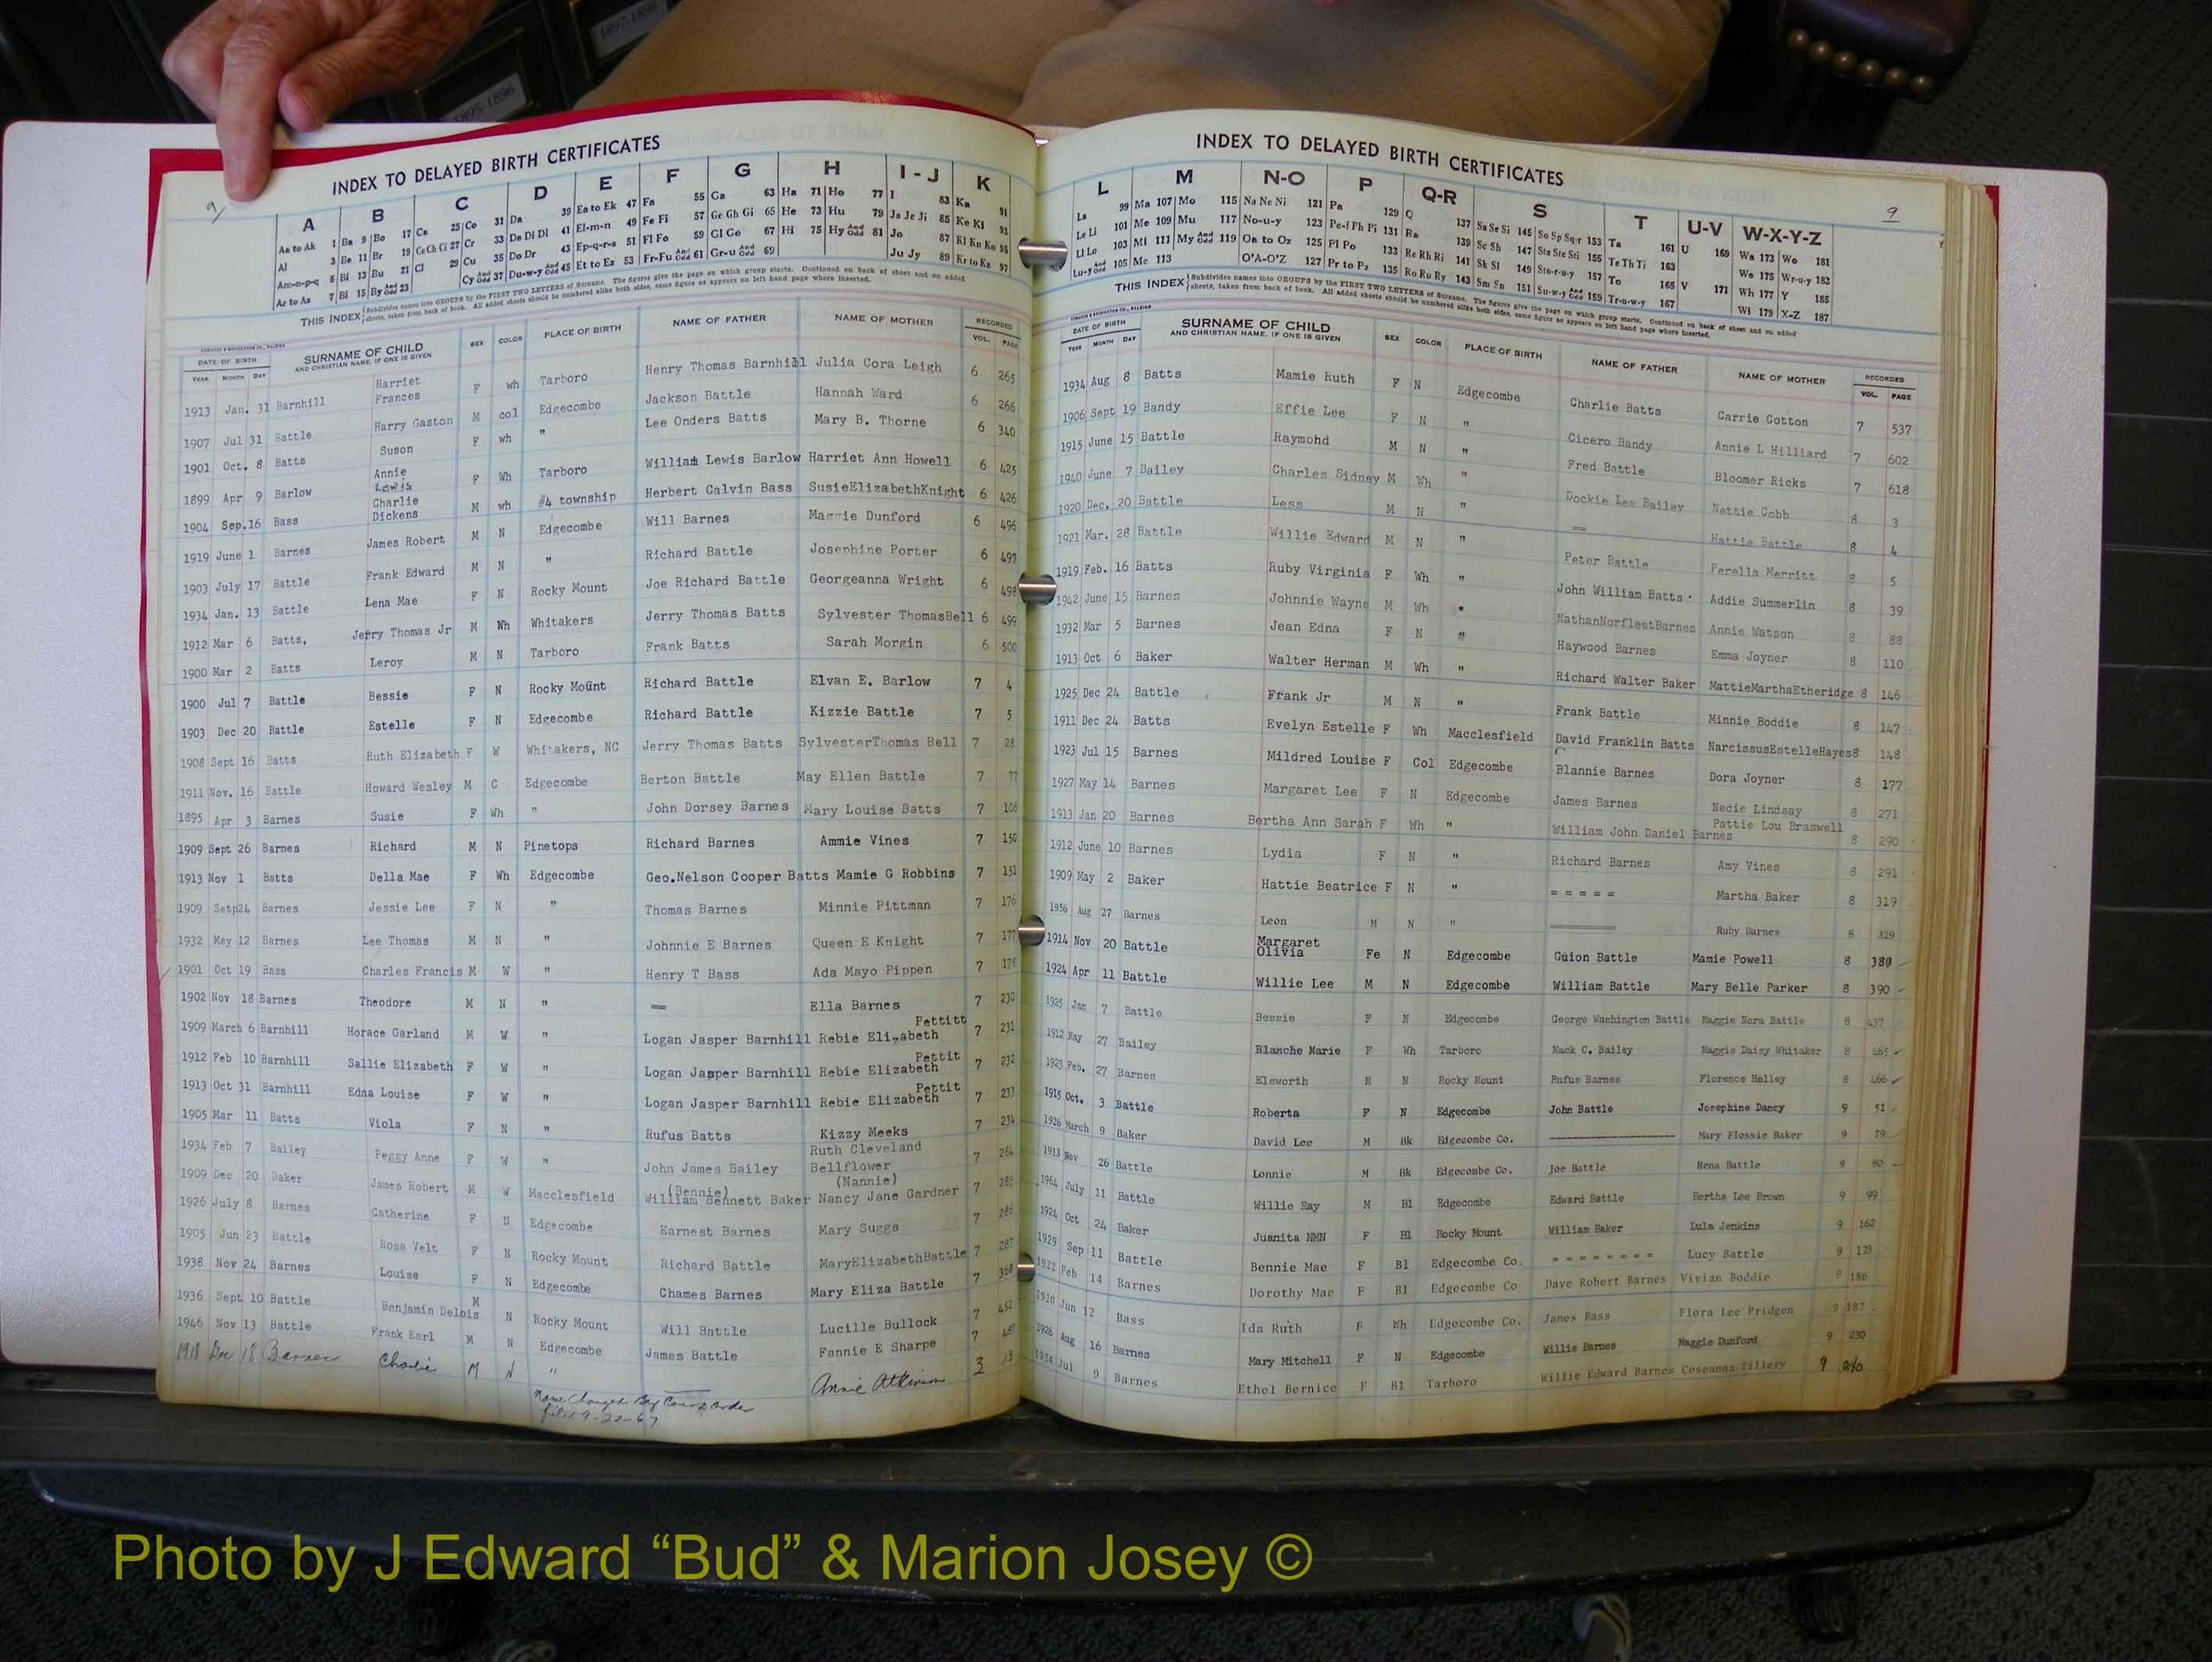 1897-1898
1895-1896
9
INDEX TO DELAYED BIRTH CERTIFICATES
A B C D E F G H I - J K
Aa to Ak 1 Ba 9 Bo 17 Ca 25 Co 31 Da 39 Ea to Ek 47 Fa 55 Ga 63 Ha 71 Ho 77 I 83 Ka 91
Al 3 Be 11 Br 19 Ce Ch Ci 27 Cr 33 De Di Dl 41 El-m-n 49 Fe Fi 57 Ge Gh Gi 65 He 73 Hu 79 Ja Je Ji 85 Ke Ki 93
Am-n-p-q 5 Bi 13 Bu 21 Cl 29 Cu 35 Do Dr 43 Ep-q-r-s 51 Fl Fo 59 Gl Go 67 Hi 75 Hy And Odd 81 Jo 87 Kl Kn Ko 95
Ar to Az 7 Bl 15 By And Odd 23 Cy And Odd 37 Du-w-y And Odd 45 Et to Ez 53 Fr-Fu And Odd 61 Gr-u And Odd 69 Ju Jy 89 Kr to Kz 97
THIS INDEX Subdivides names into GROUPS by the FIRST TWO LETTERS of Surname. The figures give the page on which group starts. Continued on back of sheet and on added
sheets, taken from back of book. All added sheets should be numbered alike both sides, same figure as appears on left hand page where inserted.
DATE OF BIRTH SURNAME OF CHILD SEX COLOR PLACE OF BIRTH NAME OF FATHER NAME OF MOTHER RECORDED
YEAR MONTH DAY AND CHRISTIAN NAME, IF ONE IS GIVEN VOL. PAGE
1913 Jan. 31 Barnhill Harriet Frances F wh Tarboro Henry Thomas Barnhill Julia Cora Leigh 6 265
1907 Jul 31 Battle Harry Gaston M col Edgecombe Jackson Battle Hannah Ward 6 266
1901 Oct. 8 Batts Suson F wh " Lee Onders Batts Mary B. Thorne 6 340
1899 Apr 9 Barlow Annie Lewis F Wh Tarboro William Lewis Barlow Harriet Ann Howell 6 425
1904 Sep.16 Bass Charlie Dickens M wh #4 township Herbert Calvin Bass SusieElizabethKnight 6 426
1919 June 1 Barnes James Robert M N Edgecombe Will Barnes Maggie Dunford 6 496
1903 July 17 Battle Frank Edward M N " Richard Battle Josephine Porter 6 497
1934 Jan. 13 Battle Lena Mae F N Rocky Mount Joe Richard Battle Georgeanna Wright 6 498
1912 Mar 6 Batts, Jerry Thomas Jr M Wh Whitakers Jerry Thomas Batts Sylvester ThomasBell 6 499
1900 Mar 2 Batts Leroy M N Tarboro Frank Batts Sarah Morgin 6 500
1900 Jul 7 Battle Bessie F N Rocky Mount Richard Battle Elvan E. Barlow 7 4
1903 Dec 20 Battle Estelle F N Edgecombe Richard Battle Kizzie Battle 7 5
1908 Sept 16 Batts Ruth Elizabeth F W Whitakers, NC Jerry Thomas Batts SylvesterThomas Bell 7 28
1911 Nov. 16 Battle Howard Wesley M C Edgecombe Berton Battle May Ellen Battle 7 77
1895 Apr 3 Barnes Susie F Wh " John Dorsey Barnes Mary Louise Batts 7 106
1909 Sept 26 Barnes Richard M N Pinetops Richard Barnes Ammie Vines 7 150
1913 Nov 1 Batts Della Mae F Wh Edgecombe Geo.Nelson Cooper Batts Mamie G Robbins 7 151
1909 Setp24 Barnes Jessie Lee F N " Thomas Barnes Minnie Pittman 7 176
1932 May 12 Barnes Lee Thomas M N " Johnnie E Barnes Queen E Knight 7 177
1901 Oct 19 Bass Charles Francis M W " Henry T Bass Ada Mayo Pippen 7 178
1902 Nov 18 Barnes Theodore M N " == Ella Barnes 7 230
1909 March 6 Barnhill Horace Garland M W " Logan Jasper Barnhill Rebie Elizabeth Pettitt 7 231
1912 Feb 10 Barnhill Sallie Elizabeth F W " Logan Jasper Barnhill Rebie Elizabeth Pettit 7 232
1913 Oct 31 Barnhill Edna Louise F W " Logan Jasper Barnhill Rebie Elizabeth Pettit 7 233
1905 Mar 11 Batts Viola F N " Rufus Batts Kizzy Meeks 7 234
1934 Feb 7 Bailey Peggy Anne F W " John James Bailey Ruth Cleveland Bellflower 7 284
1909 Dec 20 Baker James Robert M W Macclesfield William (Bennie) Bennett Baker Nancy Jane (Nannie) Gardner 7 285
1926 July 8 Barnes Catherine F N Edgecombe Earnest Barnes Mary Suggs 7 286
1905 Jun 23 Battle Rosa Velt F N Rocky Mount Richard Battle MaryElizabethBattle 7 287
1938 Nov 24 Barnes Louise F N Edgecombe Chames Barnes Mary Eliza Battle 7 368
1936 Sept 10 Battle Benjamin Delois M N Rocky Mount Will Battle Lucille Bullock 7 452
1946 Nov 13 Battle Frank Earl M N Edgecombe James Battle Fannie E Sharpe 7
1918 Dec 18 Barnes Charlie M N " Annie Atkinson 3 13
Name Changed By Court Order
filed 9-22-67
9
INDEX TO DELAYED BIRTH CERTIFICATES
L M N-O P Q-R S T U-V W-X-Y-Z
La 99 Ma 107 Mo 115 Na Ne Ni 121 Pa 129 Q 137 Sa Se Si 145 So Sp Sq-r 153 Ta 161 U 169 Wa 173 Wo 181
Le Li 101 Me 109 Mu 117 No-u-y 123 Pe-f Ph Pi 131 Ra 139 Sc Sh 147 Sta Ste Sti 155 Te Th Ti 163 We 175 Wr-u-y 183
Ll Lo 103 Mi 111 My And Odd 119 Oa to Oz 125 Pl Po 133 Re Rh Ri 141 Sk Sl 149 Sto-r-u-y 157 To 165 V 171 Wh 177 Y 185
Lu-y And Odd 105 Mc 113 O'A-O'Z 127 Pr to Pz 135 Ro Ru Ry 143 Sm Sn 151 Su-w-y And Odd 159 Tr-u-w-y 167 Wi 179 X-Z 187
THIS INDEX Subdivides names into GROUPS by the FIRST TWO LETTERS of Surname. The figures give the page on which group starts. Continued on back of sheet and on added
sheets, taken from back of book. All added sheets should be numbered alike both sides, same figure as appears on left hand page where inserted.
DATE OF BIRTH SURNAME OF CHILD SEX COLOR PLACE OF BIRTH NAME OF FATHER NAME OF MOTHER RECORDED
YEAR MONTH DAY AND CHRISTIAN NAME, IF ONE IS GIVEN VOL. PAGE
1934 Aug 8 Batts Mamie Ruth F N Edgecombe Charlie Batts Carrie Cotton 7 537
1906 Sept 19 Bandy Effie Lee F N " Cicero Bandy Annie L Hilliard 7 602
1915 June 15 Battle Raymohd M N " Fred Battle Bloomer Ricks 7 618
1940 June 7 Bailey Charles Sidney M Wh " Dockie Lee Bailey Nettie Cobb 8 3
1920 Dec. 20 Battle Less M N " == Hattie Battle 8 4
1921 Mar. 28 Battle Willie Edward M N " Peter Battle Perella Merritt 8 5
1919 Feb. 16 Batts Ruby Virginia F Wh " John William Batts Addie Summerlin 8 39
1942 June 15 Barnes Johnnie Wayne M Wh " NathanNorfleetBarnes Annie Watson 8 88
1932 Mar 5 Barnes Jean Edna F N " Haywood Barnes Emma Joyner 8 110
1913 Oct 6 Baker Walter Herman M Wh " Richard Walter Baker MattieMarthaEtheridge 8 146
1925 Dec 24 Battle Frank Jr M N " Frank Battle Minnie Boddie 8 147
1911 Dec 24 Batts Evelyn Estelle F Wh Macclesfield David Franklin Batts NarcissusEstelleHayes8 148
1923 Jul 15 Barnes Mildred Louise F Col Edgecombe Blannie Barnes Dora Joyner 8 177
1927 May 14 Barnes Margaret Lee F N Edgecombe James Barnes Necie Lindsay 8 271
1913 Jan 20 Barnes Bertha Ann Sarah F Wh " William John Daniel Barnes Pattie Lou Braswell 8 290
1912 June 10 Barnes Lydia F N " Richard Barnes Amy Vines 8 291
1909 May 2 Baker Hattie Beatrice F N " = = = = = Martha Baker 8 319
1956 Aug 27 Barnes Leon M N " Ruby Barnes 8 329
1914 Nov 20 Battle Margaret Olivia Fe N Edgecombe Guion Battle Mamie Powell 8 380
1924 Apr 11 Battle Willie Lee M N Edgecombe William Battle Mary Belle Parker 8 390
1925 Jan 7 Battle Bessie F N Edgecombe George Washington Battle Maggie Nora Battle 8 437
1912 May 27 Bailey Blanche Marie F Wh Tarboro Mack C. Bailey Maggie Daisy Whitaker 8 465
1923 Feb. 27 Barnes Elsworth M N Rocky Mount Rufus Barnes Florence Holley 8 466
1915 Oct. 3 Battle Roberta F N Edgecombe John Battle Josephine Dancy 9 51
1926 March 9 Baker David Lee M Bk Edgecombe Co. Mary Flossie Baker 9 79
1913 Nov 26 Battle Lonnie M Bk Edgecombe Co. Joe Battle Rena Battle 9 80
1964 July 11 Battle Willie Ray M Bl Edgecombe Edward Battle Bertha Lee Brown 9 99
1924 Oct 24 Baker Juanita NMN F Bl Rocky Mount William Baker Lula Jenkins 9 162
1929 Sep 11 Battle Bennie Mae F Bl Edgecombe Co. = = = = = = = = Lucy Battle 9 173
1922 Feb 14 Barnes Dorothy Mae F Bl Edgecombe Co Dave Robert Barnes Vivian Boddie 9 186
1920 Jun 12 Bass Ida Ruth F Wh Edgecombe Co. James Bass Flora Lee Pridgen 9 187
1926 Aug 16 Barnes Mary Mitchell F N Edgecombe Willie Barnes Maggie Dunford 9 230
1934 Jul 9 Barnes Ethel Bernice F Bl Tarboro Willie Edward Barnes Coseanna Tillery 9 240
Photo by J Edward “Bud” & Marion Josey ©